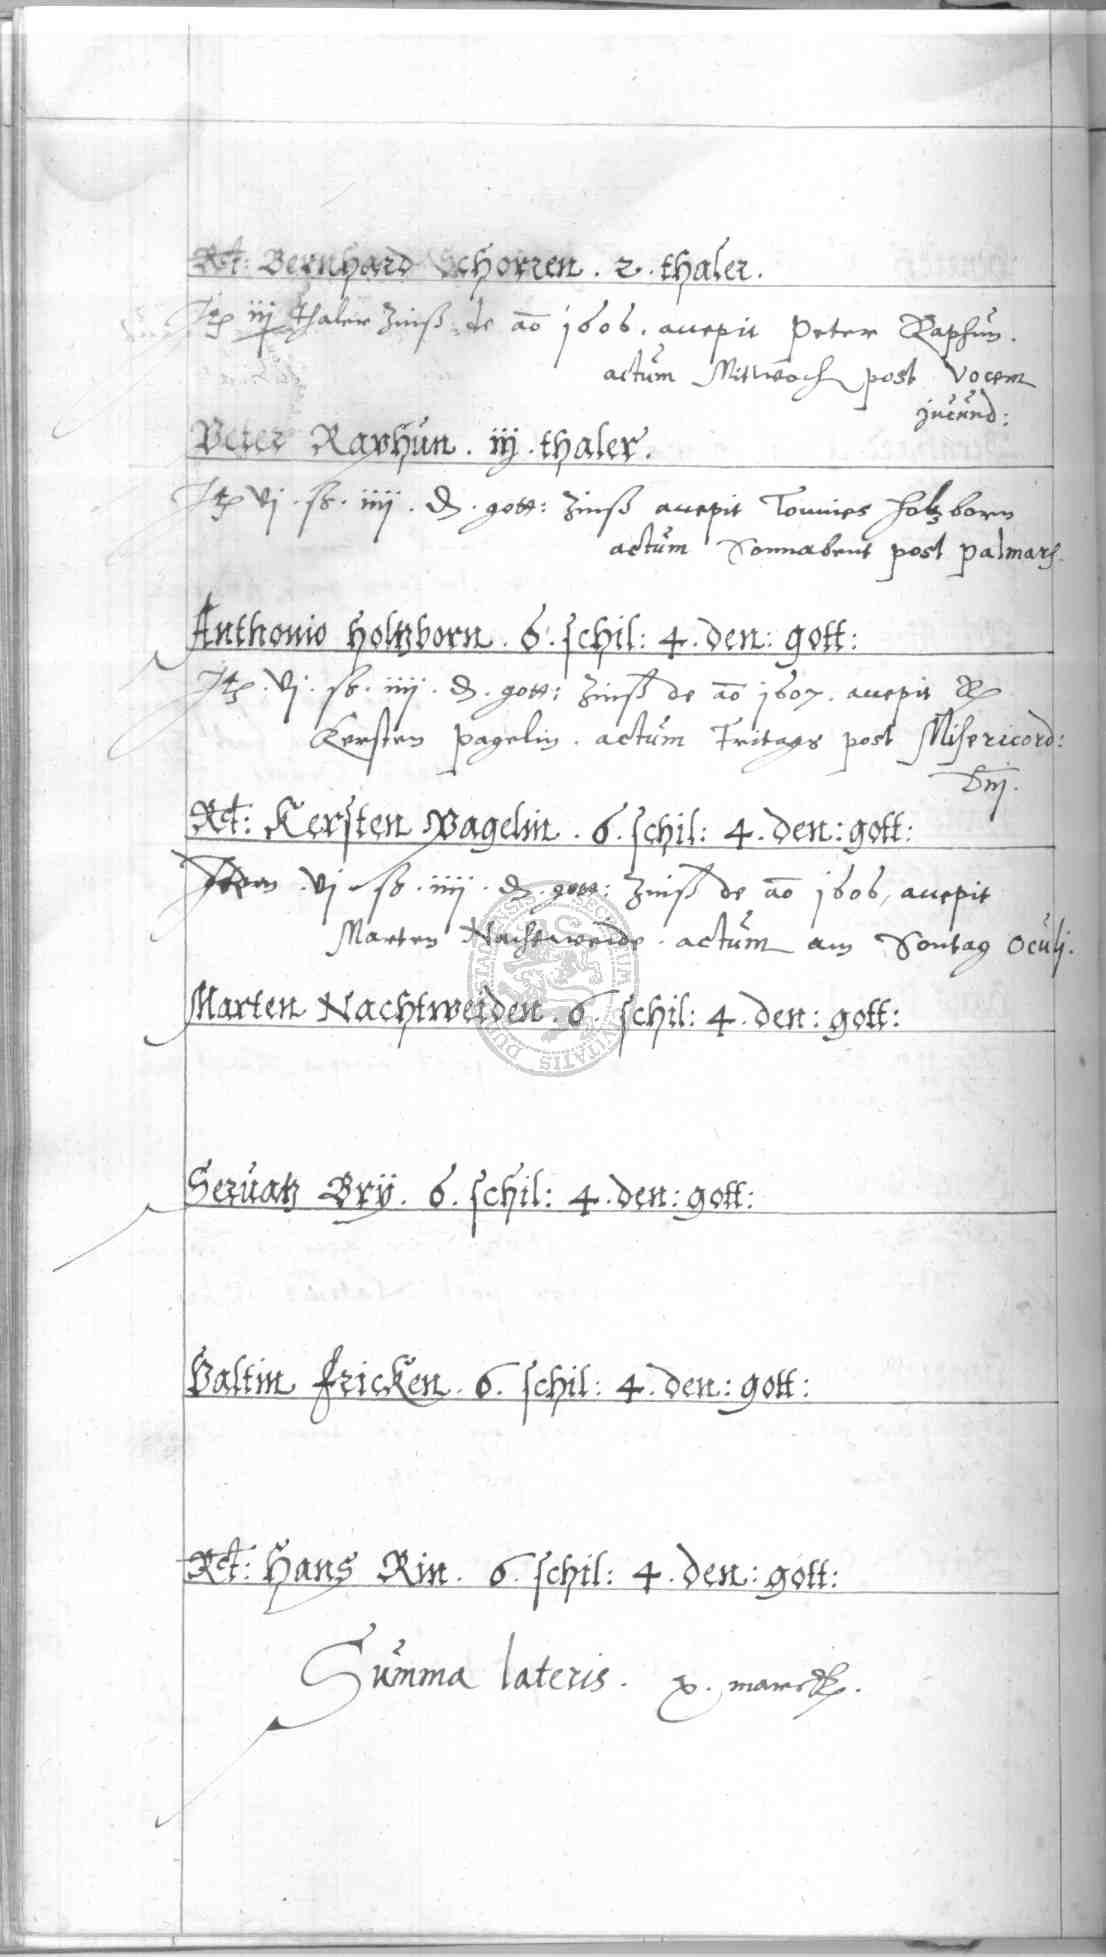 Rct: Bernhard Schorren . 2 . thaler .
Itē iij thaler Zinß de ao 1606 . accepit Peter Raphun .
actum Mitwoch post Vocem
jucund:
Peter Raphun . iij . thaler .
Itē vj . ß . iiij . ₰ . gott: Zinß accepit Tonnies Holtzborn
actum Sonnabent post palmarū
Anthonio Holtzborn . 6 . schil: 4 . den: gott:
Itē . vj . ß . iiij . ₰ . gott: Zinß de ao 1607 . accepit
Kersten pagelin . actum Fritags post Misericord:
Dnj .
Rct: Kersten Pagelin . 6 . schil: 4 . den: gott:
Item . vj . ß . iiij . ₰ . gott: Zinß de ao 1606, accepit
Marten Nachtweide . actum am Sontag Oculj .
Marten Nachtweiden . 6 . schil: 4 . den: gott:
Servatz Bry . 6 . schil: 4 . den: gott:
Valtin fricken . 6 . schil: 4 . den: gott:
Rct: Hans Rin . 6 . schil: 4 . den: gott:
Summa lateris . x . marck .